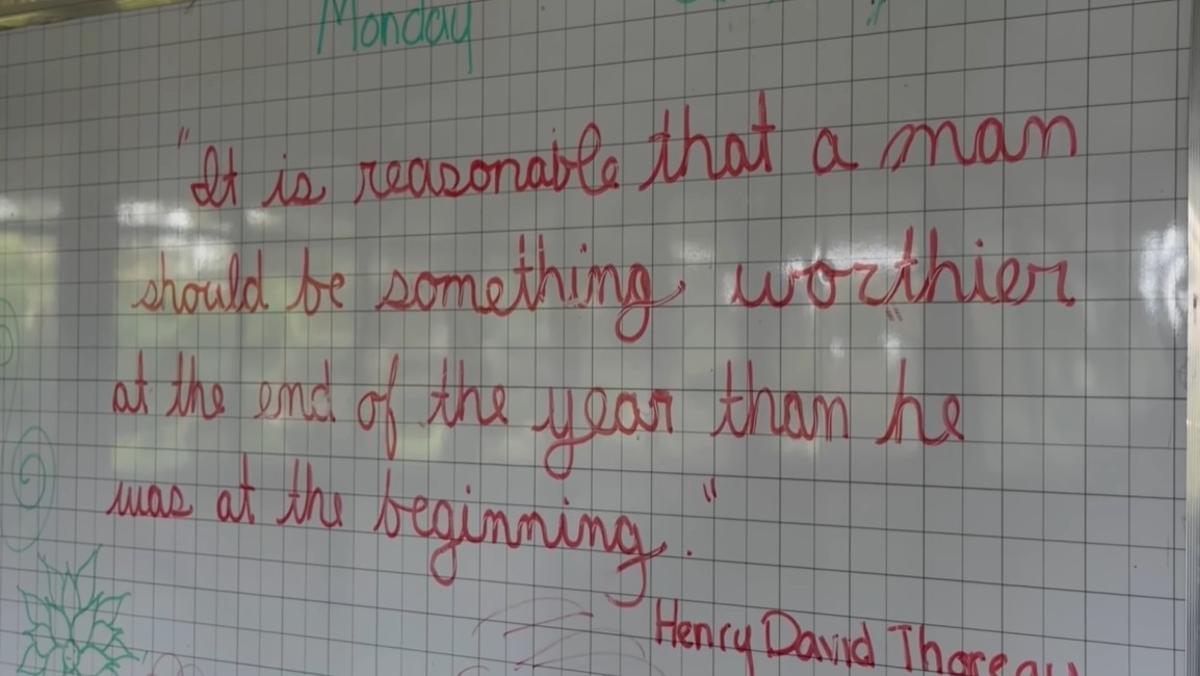 Monday
"It is reasonable that a man
should be something worthier
at the end of the year than he
was at the beginning."
Henry David Thoreau